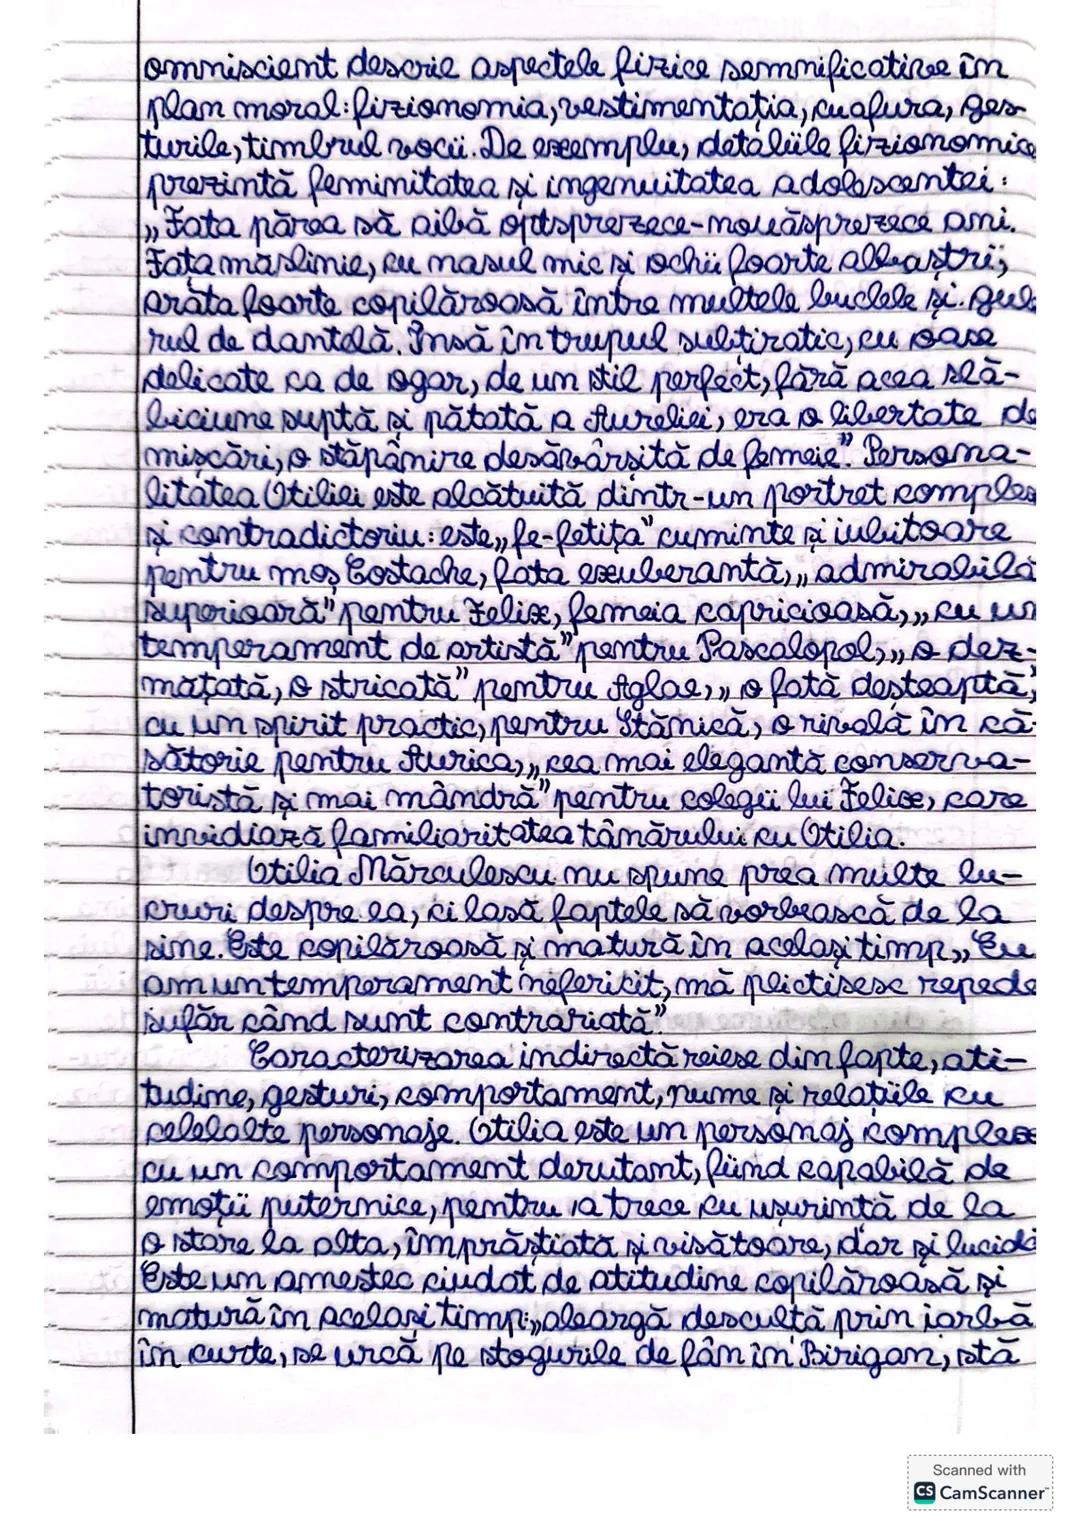 omniscient descrie aspectele fizice semnificative în
plan moral: fizionomia, vestimentația, cuafura, ges-
turile, timbrul vocii. De exemplu, detaliile fizionomice
prezintă feminitatea și ingenuitatea adolescentei:
„Fata părea să aibă optsprezece-nouăsprezece ani.
Fața măslinie, cu nasul mic și ochii foarte albaștri,
arăta foarte copilăroasă între multele bucle și gule
rul de dantelă. Însă în trupul subțiratic, cu oase
delicate ca de ogar, de un stil perfect, fără acea slă-
biciune suptă și pătată a Aureliei, era o libertate de
mișcări, o stăpânire desăvârșită de femeie". Persona-
litatea Otiliei este alcătuită dintr-un portret complex
și contradictoriu: este „fe-fetița" cuminte și iubitoare
pentru moș Costache, fata exuberantă, „admirabilă
superioară" pentru Felix, femeia capricioasă, „cu un
temperament de artistă" pentru Pascalopol, „o dez-
mățată, o stricată" pentru Aglae, „o fată deșteaptă,
cu un spirit practic, pentru Stănică, o rivală în că-
sătorie pentru Aurica, „cea mai elegantă conserva-
toristă și mai mândră" pentru colegii lui Felix, care
invidiază familiaritatea tânărului cu Otilia.
Otilia Mărculescu nu spune prea multe lu-
cruri despre ea, ci lasă faptele să vorbească de la
sine. Este copilăroasă și matură în același timp „Eu
am un temperament nefericit, mă plictisesc repede
sufăr când sunt contrariată".
Caracterizarea indirectă reiese din fapte, ati-
tudine, gesturi, comportament, nume și relațiile cu
celelalte personaje. Otilia este un personaj complex
cu un comportament derutant, fiind capabilă de
emoții puternice, pentru a trece cu ușurință de la
o stare la alta, împrăștiată și visătoare, dar și lucidă
Este un amestec ciudat de atitudine copilăroasă și
matură în același timp: „aleargă desculță prin iarbă
în curte, se urcă pe stogurile de fân în Birigan, stă
Scanned with
CS CamScanner